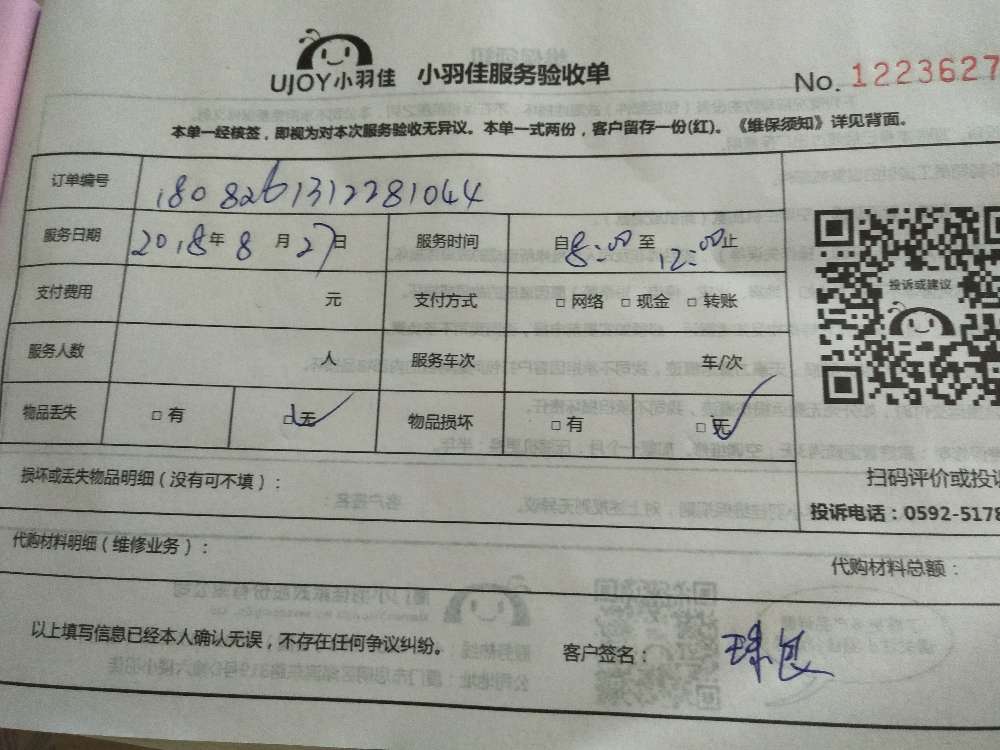 UJOY小羽佳 小羽佳服务验收单 No. 1223627
本单一经核签，即视为对本次服务验收无异议。本单一式两份，客户留存一份(红)。《维保须知》详见背面。
订单编号 1808261312281044
服务日期 2018年8月27日 服务时间 自8:00至12:00止
投诉或建议
支付费用 元 支付方式 □ 网络 □ 现金 □ 转账
服务人数 人 服务车次 车/次
物品丢失 □ 有 □ 无 物品损坏 □ 有 □ 无
损坏或丢失物品明细（没有可不填）：
扫码评价或投诉
投诉电话：0592-5178
代购材料明细（维修业务）：
代购材料总额：
以上填写信息已经本人确认无误，不存在任何争议纠纷。
客户签名：